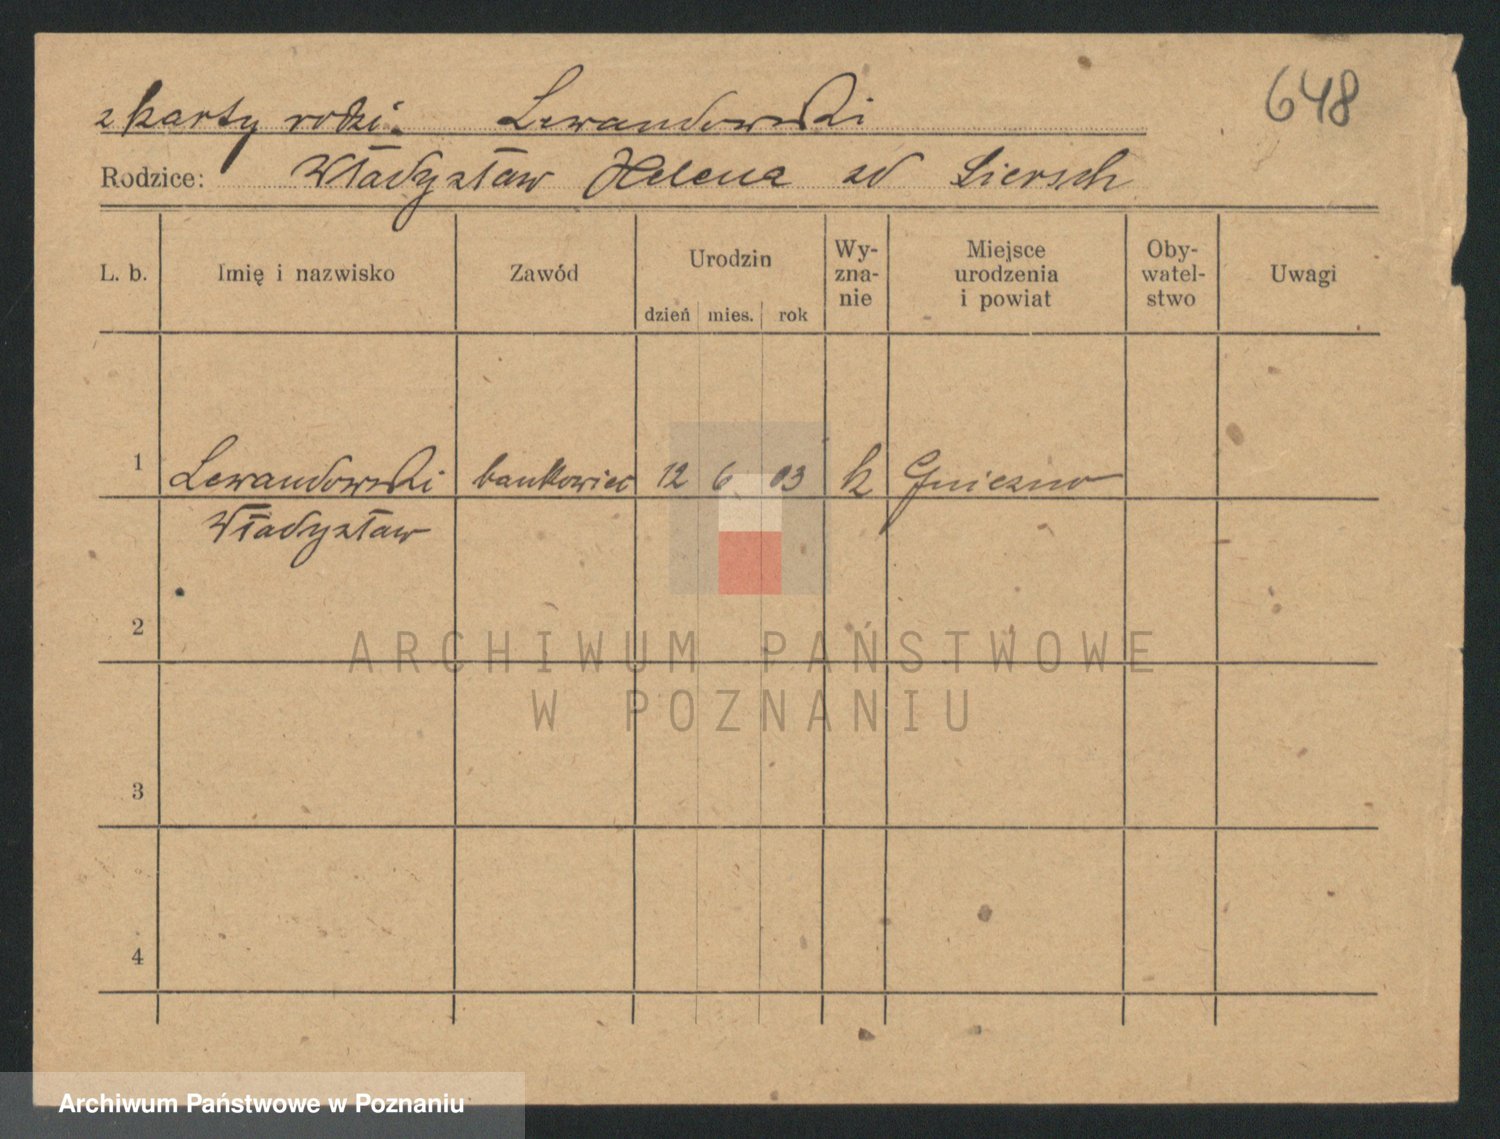 648
z karty rodzi. Lewandowski
Rodzice: Władysław Helena zd Siersch
L. b. Imię i nazwisko Zawód Urodzin Wy-zna-nie Miejsce urodzenia i powiat Oby-watel-stwo Uwagi
dzień mies. rok
1 Lewandowski bankowiec 12 6 03 k Gniezno
Władysław
2
ARCHIWUM PAŃSTWOWE
W POZNANIU
3
4
Archiwum Państwowe w Poznaniu